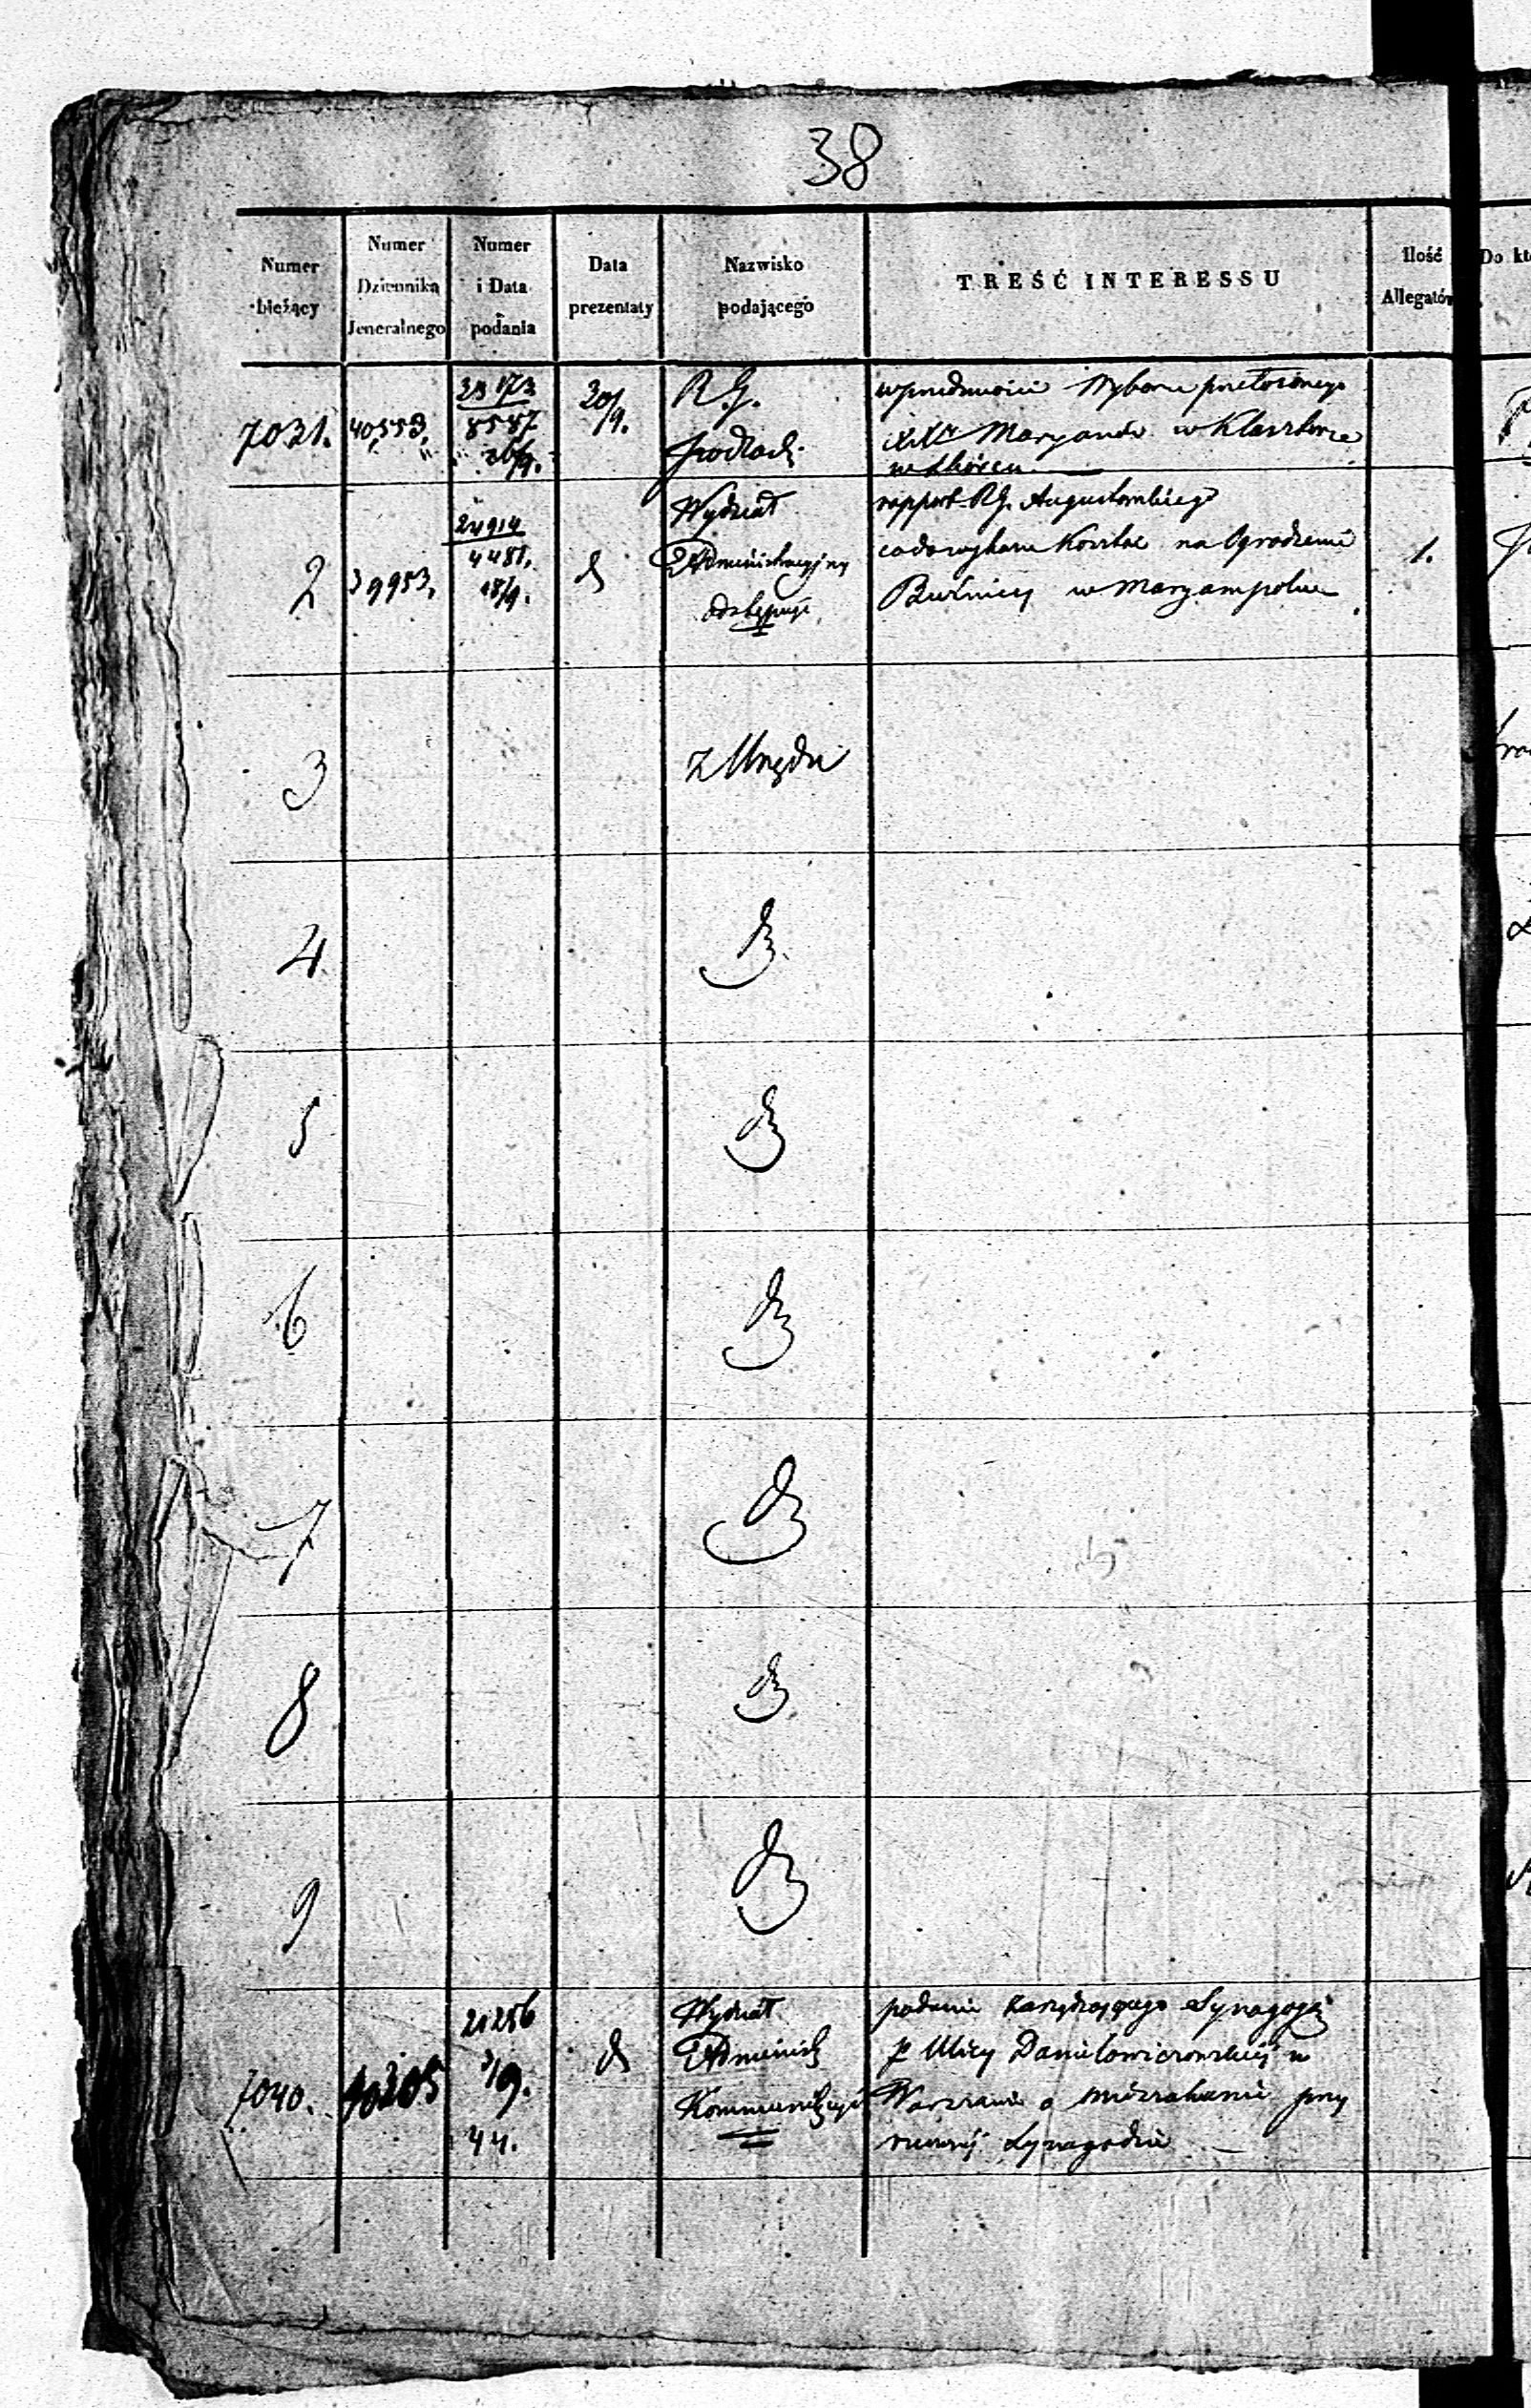 38
Numer bieżący
Numer Dziennika Jeneralnego
Numer i Data podania
Data prezentaty
Nazwisko podającego
TREŚĆ INTERESSU
Ilość Allegatów
Do kt
7031. 40553.
23173
8587
26/9.
30/9.
R. G.
Podlach.
w przedmiocie Wyboru przełożonego
XX Maryanów w Klasztorze
2 39953.
24914
4481.
18/9.
d
Wydział
Administracyjny
odstępuje
rapport R.G. Augustowskiego
co do wykazu Kosztów na Ogrodzenie
Bużnicy w Maryampolu
1.
3
z Urzędu
4
dto
5
dto
6
dto
7
dto
8
dto
9
dto
7040. 40205
21256
3/9.
44.
d
Wydział
Administ
Kommunikuje
podanie Zarządzającego Synagogą
p Ulicy Daniłowiczowskiej w
Warszawie o mieszkanie przy
Synagodze